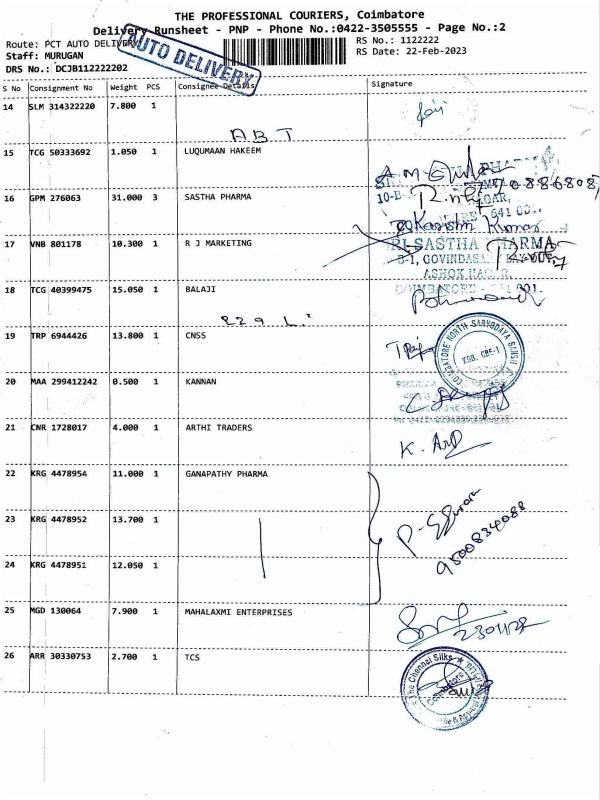 THE PROFESSIONAL COURIERS, Coimbatore
Delivery Runsheet - PNP - Phone No.:0422-3505555 - Page No.:2
Route: PCT AUTO DELIVERY
RS No.: 1122222
Staff: MURUGAN
RS Date: 22-Feb-2023
DRS No.: DCJB112222202
AUTO DELIVERY
S No Consignment No Weight PCS Consignee Details Signature
14 SLM 314322220 7.800 1
ABT
15 TCG 50333692 1.050 1 LUQUMAAN HAKEEM
16 GPM 276063 31.000 3 SASTHA PHARMA
17 VNB 801178 10.300 1 R J MARKETING
SRI SASTHA PHARMA
B-1, GOVINDASAMY
ASHOK NAGAR,
COIMBATORE
18 TCG 40399475 15.050 1 BALAJI
229
19 TRP 6944426 13.800 1 CNSS
COIMBATORE NORTH SARVODAYA SANGH
20 MAA 299412242 0.500 1 KANNAN
21 CNR 1728017 4.000 1 ARTHI TRADERS
22 KRG 4478954 11.000 1 GANAPATHY PHARMA
23 KRG 4478952 13.700 1
9500834088
24 KRG 4478951 12.050 1
25 MGD 130064 7.900 1 MAHALAXMI ENTERPRISES
26 ARR 30330753 2.700 1 TCS
The Chennai Silks
Coimbatore